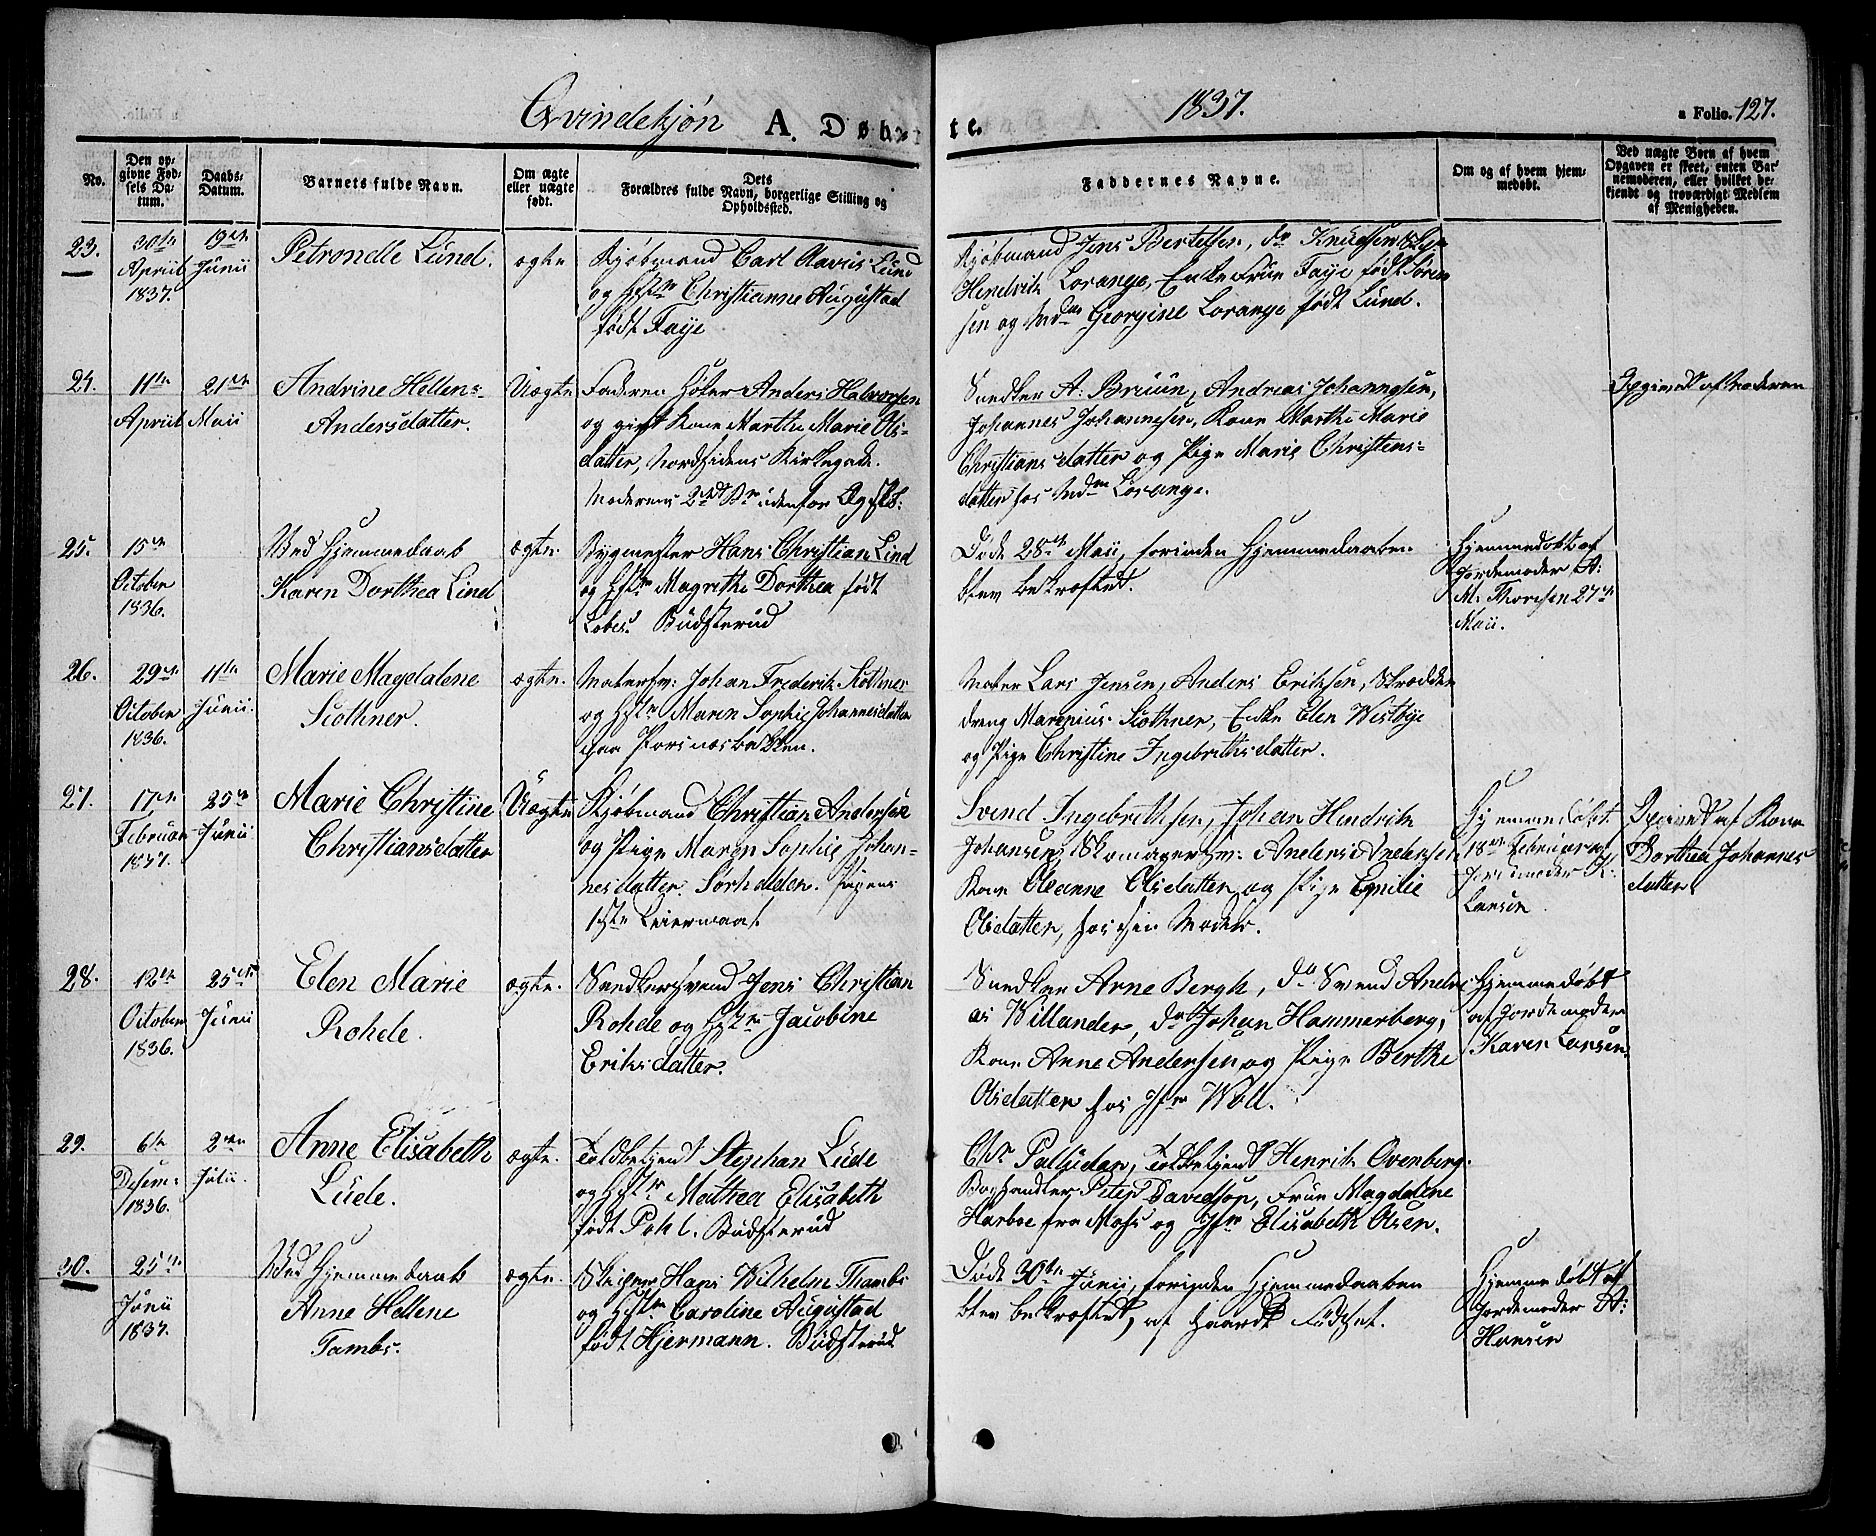 Qvindekjøn A. Døbte. 1837. a Folio. 127.
No.
Den opgivne Fødsels Datum.
Daabs-Datum.
Barnets fulde Navn.
Om ægte eller uægte født.
Dets Forældres fulde Navn, borgerlige Stilling og Opholdssted.
Faddernes Navne.
Om og af hvem hjemmedøbt.
Ved uægte Børn af hvem Opgaven er skeet, enten Barnemoderen, eller hvilket bekjendt og troværdigt Medlem af Menigheden.
23.
30te
April
1837.
19de
Junii
Petrondle Lund.
ægte
Kjøbmand Carl Lund
og Hstr Christianne Augustad
født Faye
Kjøbmand Jens Bertelsen, do Knudsen
Hendrik Lorange, Enkefrue Faye født Søren
sen og Mdm Georgine Lorange født Lund.
24.
11te
April
21de
Maii
Andrine Hellen=
Andersdatter.
Uægte
Faderen Anders Halvorsen
og gift Kone Marthe Marie Ols=
datter, Nordsidens Kirkegade.
Moderens 2det Bn udenfor Ægtsk:
Snedker A: Bruun, Andreas Johannesen,
Johannes Johannesen, Kone Marthe Marie
Christiansdatter og Pige Marie Christens=
datter hos Mdm Lorange.
Opgivet af Moderen
25.
15de
October
1836.
Ved Hjemmedaab
Karen Dorthea Lind
ægte.
Bygmester Hans Christian Lind
og Hstr Magrethe Dorthea født
Lobes. Budsterud
Døde 28de Maii, forinden Hjemmedaaben
blev bekræftet.
Hjemmedøbt af
Jordemoder A:
M: Thoresen 27de
Maii.
26.
29de
October
1836.
11te
Junii.
Marie Magdalene
Siothner.
ægte.
Matersv: Johan Frederik Siothner
og Hstr Maren Sophie Johannesdatter
paa Porsnesbakken.
Mater Lars Jensen, Anders Eriksen, Skrædder
dreng Marenius Siothner, Enke Elen Westbye
og Pige Christine Ingebrethsdatter.
27.
17de
Februar
1837.
25de
Junii
Marie Christiine
Christiansdatter
Uægte
Kjøbmand Christian Andersen
og Pige Maren Sophie Johan-
nesdatter. Sørhalden. Pigens
1ste Leiermaal.
Svend Ingebrethsen, Johan Hendrik
Johansen, Skomagersv: Anders Andersen,
Kone Oleanne Olsdatter, og Pige Emilie
Olsdatter, hos sin Moder.
Hjemmedøbt
18de Februar af
Jordemoder K:
Larsen
Opgivet af Kone
Dorthea Johannes
datter
28.
12te
October
1836.
25de
Junii
Elen Marie
Rohde.
ægte.
Snedkersvend Jens Christian
Rohde og Hstr Jacobine
Eriksdatter.
Snedker Arne Bergh, do Svend Andre
as Willander, do Johan Hammerberg,
Kone Anne Andersen og Pige Berthe
Olsdatter hos Jfr Woll.
Hjemmedøbt
af Jordemoder
Karen Larsen
29.
6te
Decem:
1836.
2den
Julii.
Anne Elisabeth
Lude.
ægte.
Toldbetjent Stephan Lude
og Hstr Mathea Elisabeth
født Pohl. Budsterud
Chr Palludan, Toldbetjent Henrik Ovenberg
Boghandler Peter Davidson, Frue Magdalene
Harboe fra Moss og Jfr Elisabeth Olsen.
30.
25de
Junii
1837.
Ved Hjemmedaab
Anne Hellene
Tambs.
ægte.
Skipper Hans Wilhelm Thambs
og Hstr Caroline Augustad
født Hjermann. Budsterud
Døde 30te Junii, forinden Hjemmedaaben
blev bekræftet, af haard Fødsel.
Hjemmedøbt af
Jordemoder A:
Hansen